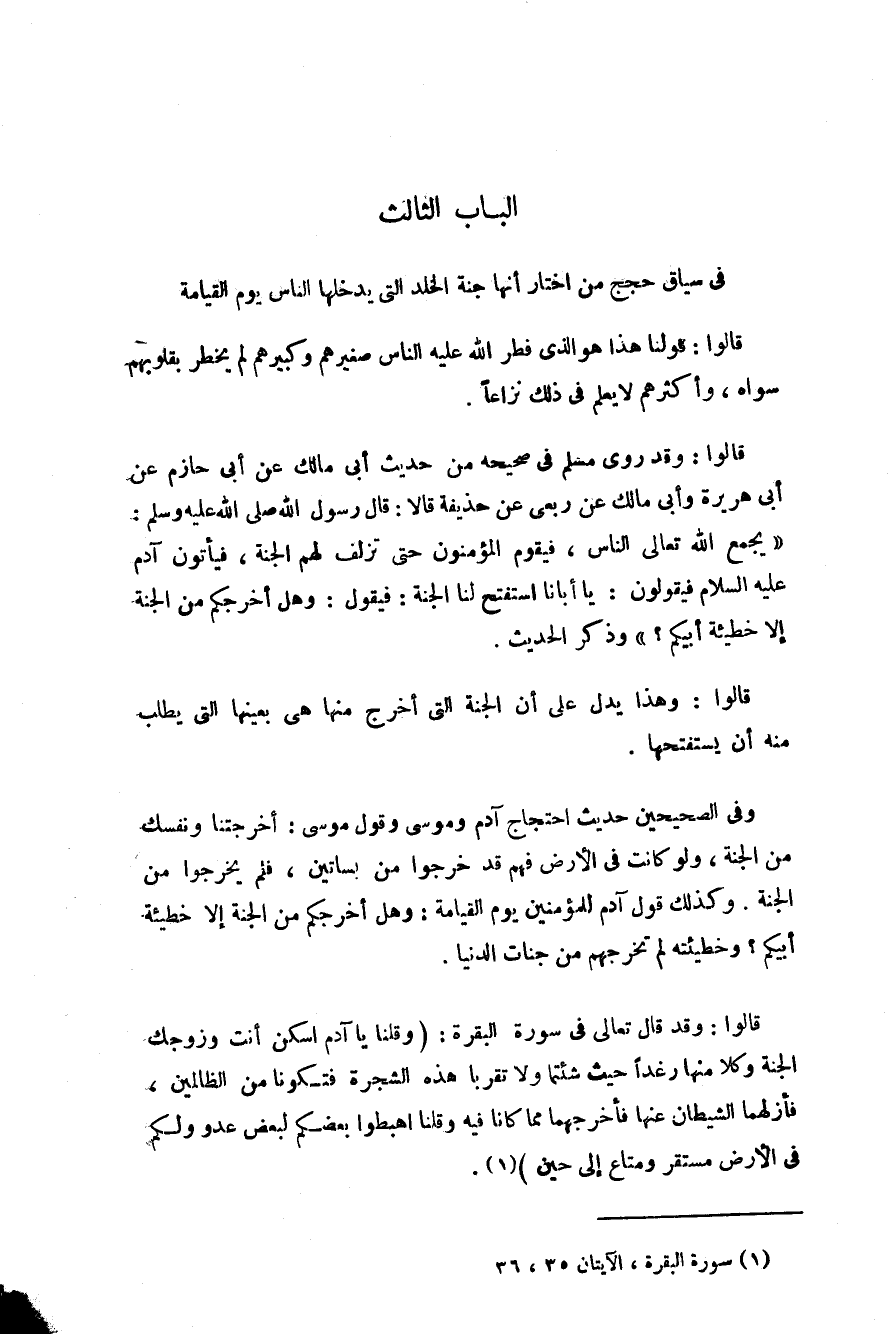 الباب الثالث
فى سياق حجج من اختار أنها جنة الخلد التى يدخلها الناس يوم القيامة
قالوا : قولنا هذا هو الذى فطر الله عليه الناس صغيرهم وكبيرهم لم يخطر بقلوبهم
سواه ، وأكثرهم لا يعلم فى ذلك نزاعاً .
قالوا : وقد روى مسلم فى صحيحه من حديث أبى مالك عن أبى حازم عن
أبى هريرة وأبى مالك عن ربعى عن حذيفة قالا : قال رسول الله صلى الله عليه وسلم :
« يجمع الله تعالى الناس ، فيقوم المؤمنون حتى تزلف لهم الجنة ، فيأتون آدم
عليه السلام فيقولون : يا أبانا استفتح لنا الجنة : فيقول : وهل أخرجكم من الجنة
إلا خطيئة أبيكم ؟ » وذكر الحديث .
قالوا : وهذا يدل على أن الجنة التى أخرج منها هى بعينها التى يطلب
منه أن يستفتحها .
وفى الصحيحين حديث احتجاج آدم وموسى وقول موسى : أخرجتنا ونفسك
من الجنة ، ولو كانت فى الأرض فهم قد خرجوا من بساتين ، فلم يخرجوا من
الجنة . وكذلك قول آدم للمؤمنين يوم القيامة : وهل أخرجكم من الجنة إلا خطيئة
أبيكم ؟ وخطيئته لم تخرجهم من جنات الدنيا .
قالوا : وقد قال تعالى فى سورة البقرة : ( وقلنا يا آدم اسكن أنت وزوجك
الجنة وكلا منها رغداً حيث شئتما ولا تقربا هذه الشجرة فتكونا من الظالمين ،
فأزلهما الشيطان عنها فأخرجهما مما كانا فيه وقلنا اهبطوا بعضكم لبعض عدو ولكم
فى الأرض مستقر ومتاع إلى حين )(١) .
(١) سورة البقرة ، الآيتان ٣٥ ، ٣٦